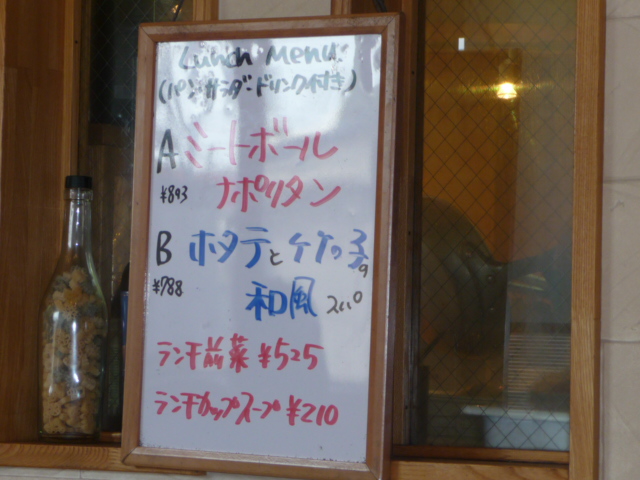 Lunch Menu
(パン サラダ・ドリンク付き)
A ミートボール
¥893 ナポリタン
B ホタテと
¥788 和風
ランチ前菜 ¥525
ランチカップスープ ¥210